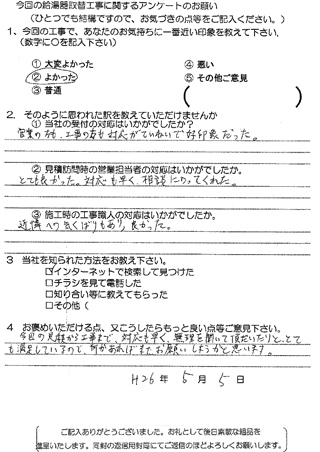 今回の給湯器取替工事に関するアンケートのお願い
(ひとつでも結構ですので、お気づきの点等をご記入ください。)
1、今回の工事で、あなたのお気持ちに一番近い印象を教えて下さい、
(数字に○を記入下さい)
① 大変よかった ④ 悪い
② よかった ⑤ その他ご意見
③ 普通 ( )
2、そのように思われた訳を教えていただけませんか
① 当社の受付の対応はいかがでしたか？
営業の方も、工事の方も対応がていねいで好印象だった。
② 見積訪問時の営業担当者の対応はいかがでしたか。
とても良かった。対応も早く、相談にのってくれた。
③ 施工時の工事職人の対応はいかがでしたか。
近隣への気くばりもあり、良かった。
3 当社を知られた方法をお教え下さい。
□インターネットで検索して見つけた
□チラシを見て電話した
□知り合い等に教えてもらった
□その他(
4 お褒めいただける点、又こうしたらもっと良い点等ご意見下さい。
今回の見積から工事まで、対応も早く、無理を聞いて頂だいたりと、とて
も満足しているので、何かあればまたお願いしようかと思います。
H26年 5月 5日
ご記入ありがとうございました。お礼として後日素敵な粗品を
進呈いたします。同封の返信用封筒にてご返信のほどよろしくお願いします。